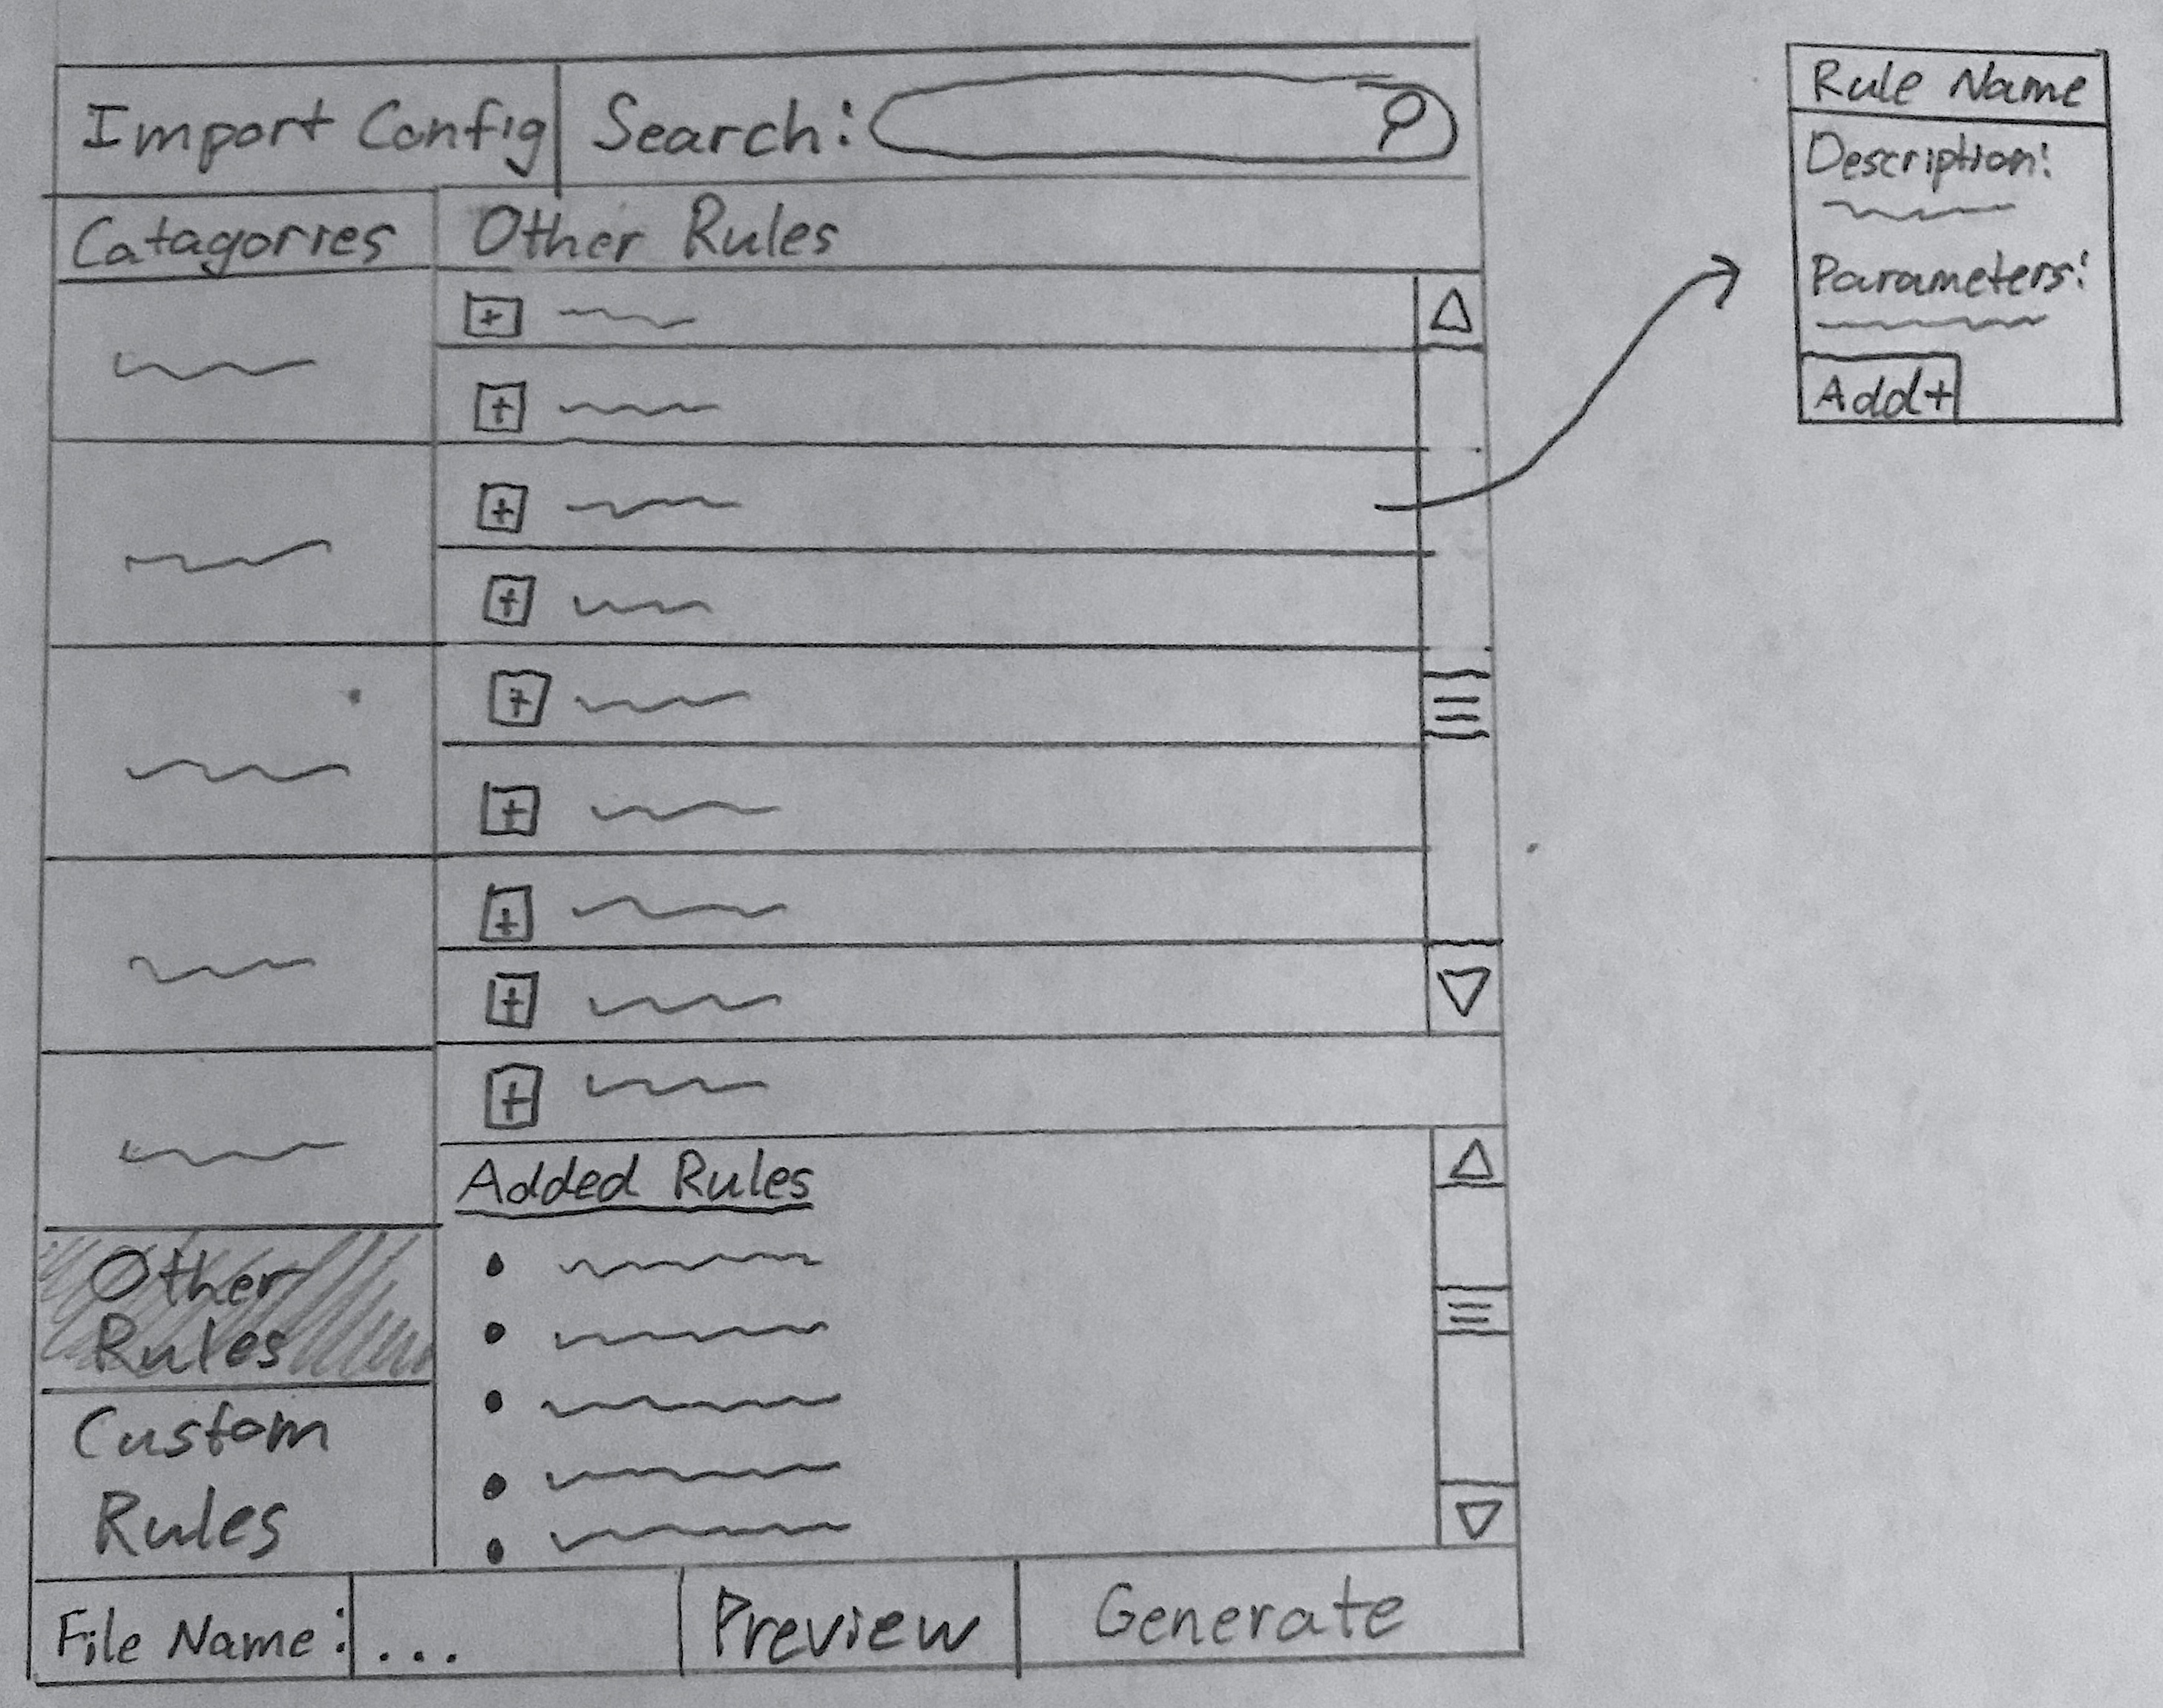 Import Config
Search:
Catagories
Other Rules
+
+
+
+
+
+
+
+
+
Added Rules
Other
Rules
Custom
Rules
File Name: ...
Preview
Generate
Rule Name
Description:
Parameters:
Add+